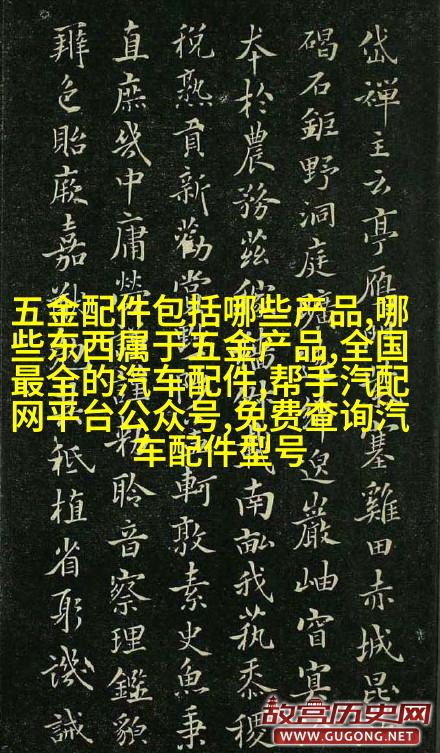 五金配件包括哪些产品,哪
些东西属于五金产品,全国
最全的汽车配件,帮手汽配
网平台公众号,免费查询汽
车配件型号
岱禪主云亭雁塞雞田赤城昆
碣石鉅野洞庭邈巖岫窅冥
本於農務茲南畝我蓺黍稷
稅熟貢新勸賞軻敦素史魚秉
直庶幾中庸勞勑聆音察理鑑貌
辨色貽厥嘉祗植省躬譏誡
故宫历史网
WWW.GUGONG.NET